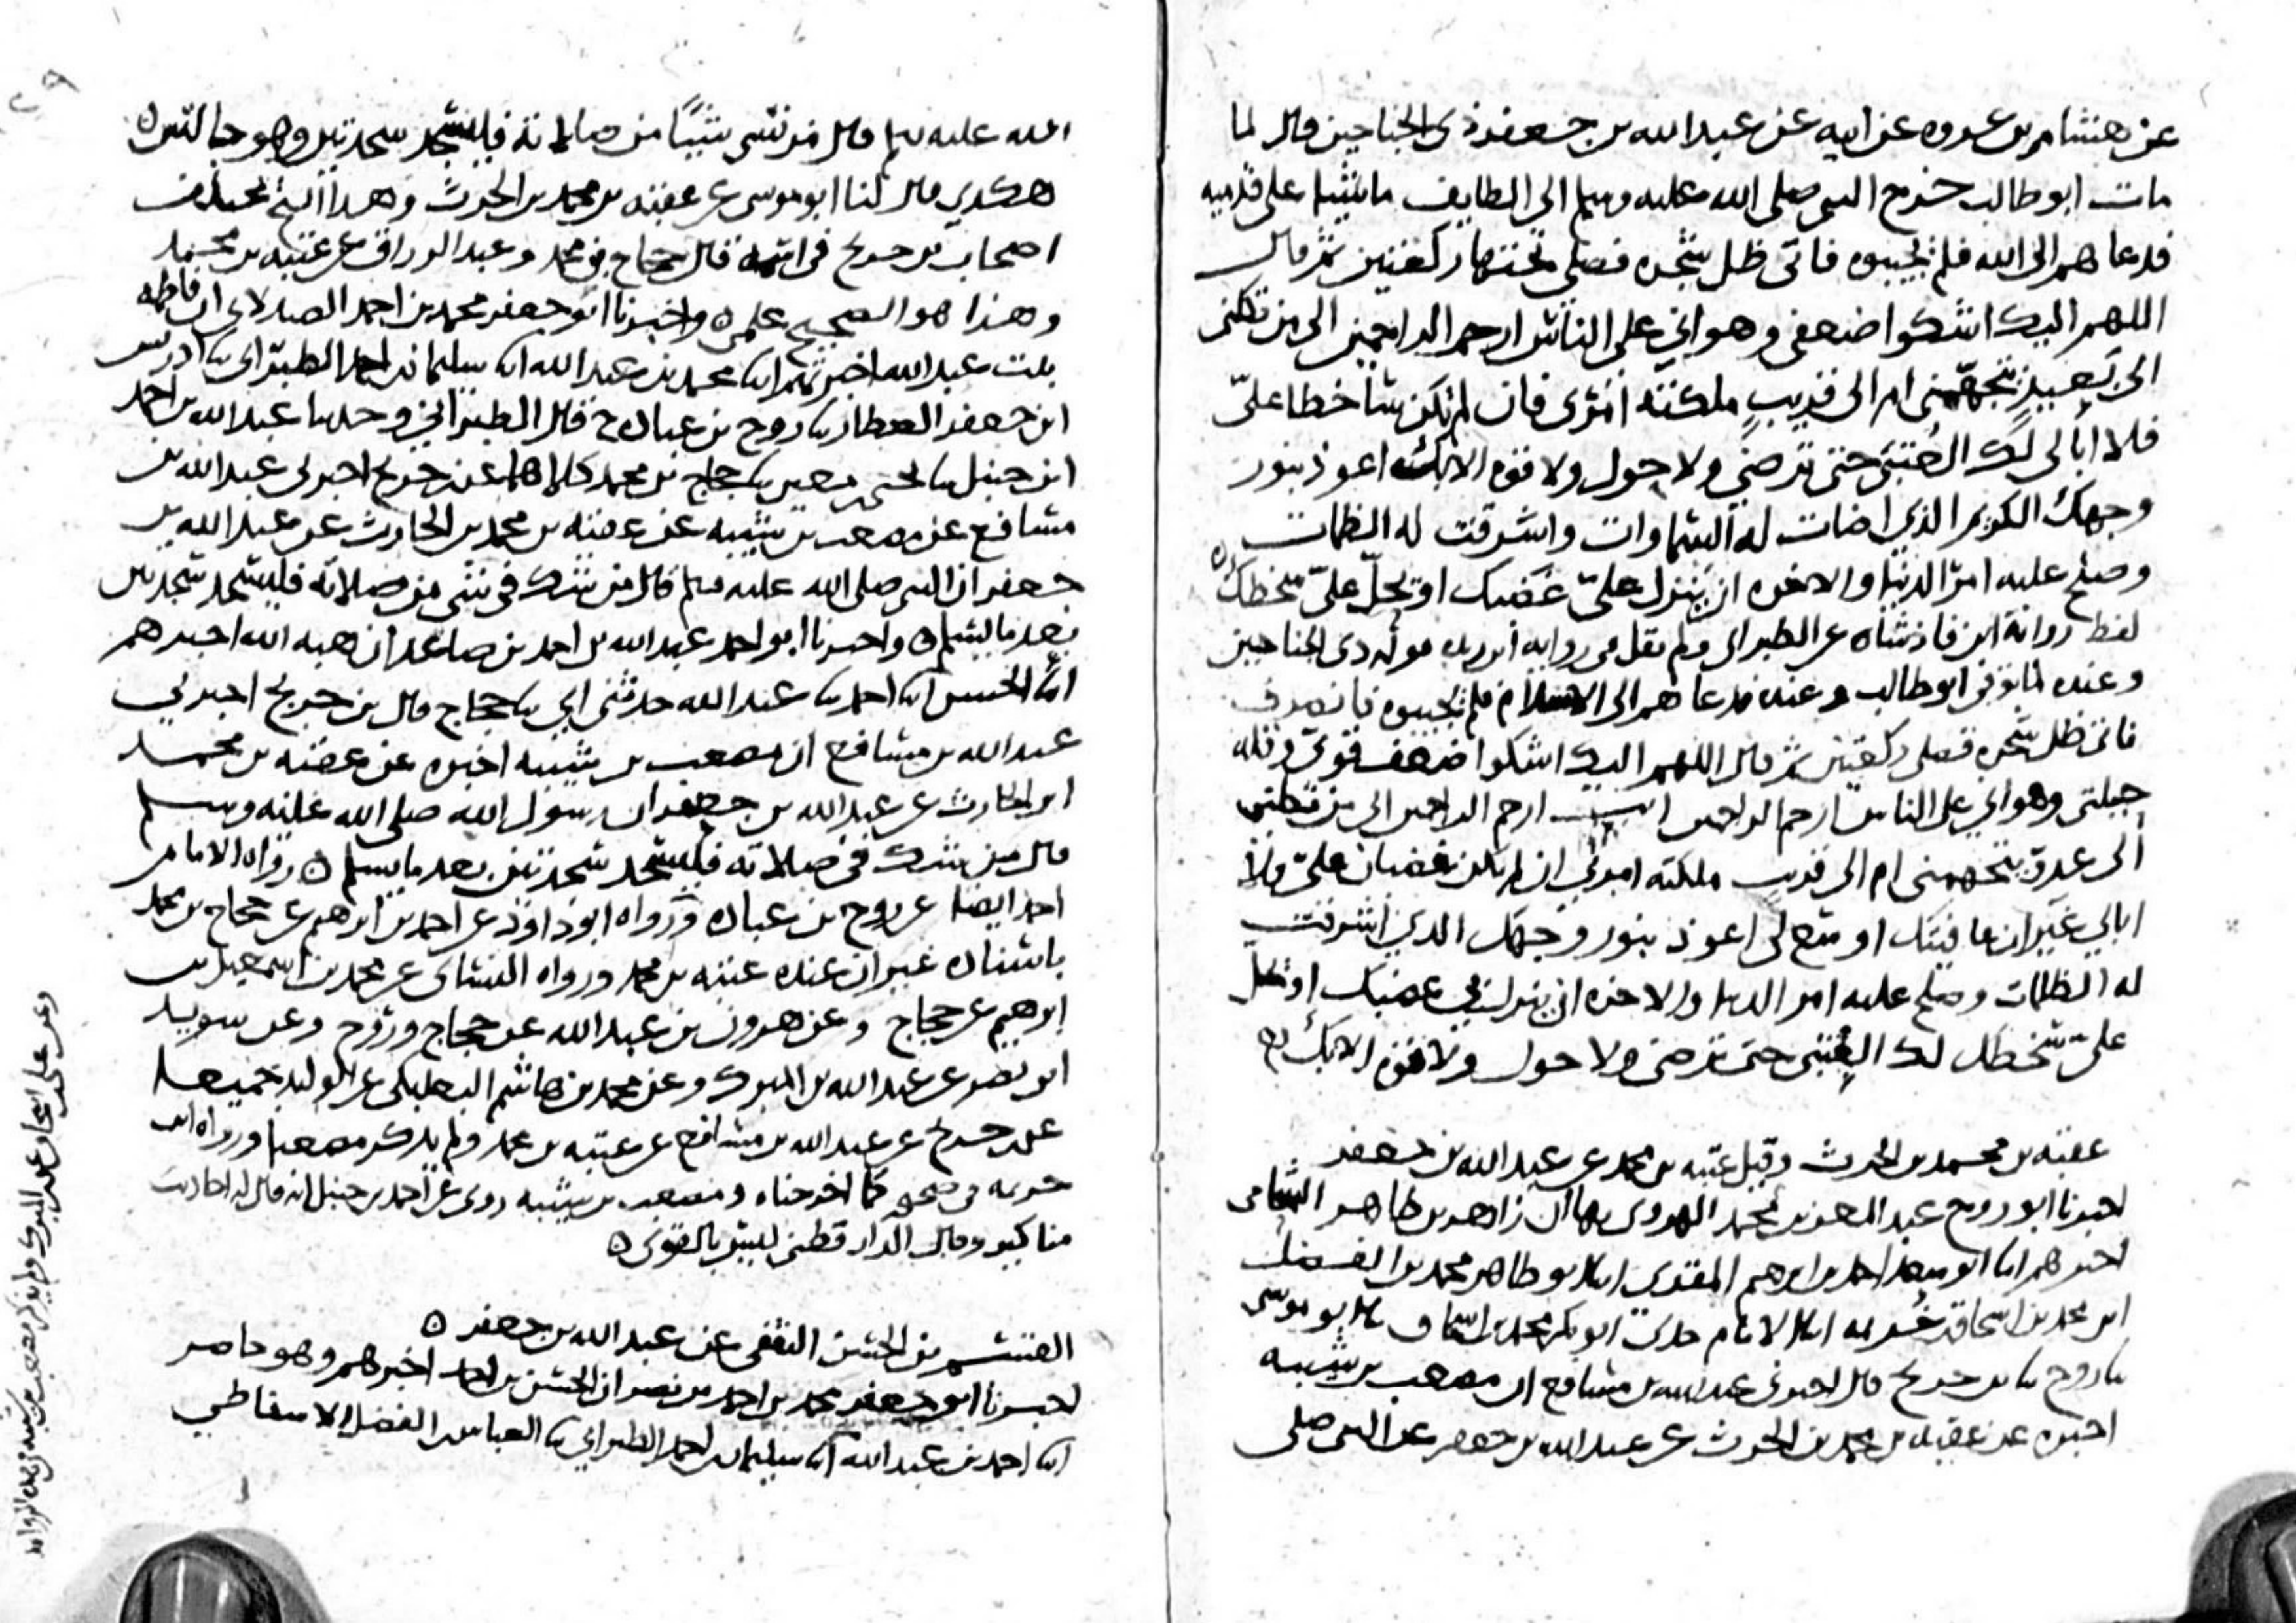 عن هشام بن عروه عن ابيه عن عبد الله بن جعفر ذى الجناحين قال لما
مات ابو طالب خرج النبى صلى الله عليه وسلم الى الطايف ماشيا على قدميه
فدعاهم الى الله فلم يجيبوه فاتى ظل شجره فصلى تحتها ركعتين ثم قال
اللهم اليك اشكوا ضعفى وهوانى على الناس ارحم الراحمين الى من تكلنى
الى بعيد يتجهمنى ام الى قريب ملكته امرى فان لم تكن ساخطا على
فلا ابالى لك العتبى حتى ترضى ولا حول ولا قوه الا بك اعوذ بنور
وجهك الكريم الذى اضات له السماوات واشرقت له الظلمات
وصلح عليه امر الدنيا والاخره ان ينزل على غضبك او يحل على سخطك ه
لفظ رواية ابن فاذشاه عن الطبرانى ولم يقل فى روايه ابن ريذه قوله ذى الجناحين
وعنده لما توفى ابو طالب وعنده فدعاهم الى الاسلام فلم يجيبوه فانصرف
فاتى ظل شجره فصلى ركعتين ثم قال اللهم اليك اشكوا ضعف قوتى وقله
حيلتى وهوانى على الناس ارحم الراحمين انت ارحم الراحمين الى من تكلنى
الى عدو يتجهمنى ام الى قريب ملكته امرى ان لم تكن غضبان على فلا
ابالى غير ان عافيتك اوسع لى اعوذ بنور وجهك الذى اشرقت
له الظلمات وصلح عليه امر الدنيا والاخره ان ينزل بى غضبك او يحل
على سخطك لك العتبى حتى ترضى ولا حول ولا قوه الا بك
عقبه بن محمد بن الحرث وقيل عتبه بن محمد عن عبد الله بن جعفر
اخبرنا ابو روح عبد المعز بن محمد الهروى بها ان زاهر بن طاهر الشحامى
اخبرهم انا ابو سعد احمد بن ابرهيم المقرى انا ابو طاهر محمد بن الفضل
ابن محمد بن اسحاق بن خزيمه انا الامام جدى ابو بكر محمد بن اسحاق نا ابو موسى
نا روح نا ابن جريج قال اخبرنى عبد الله بن مسافع ان مصعب بن شيبه
اخبره عن عقبه بن محمد بن الحرث عن عبد الله بن جعفر عن النبى صلى
الله عليه وسلم قال من نسى شيئا من صلاته فليسجد سجدتين وهو جالس ه
هكذى قال لنا ابو موسى عن عقبه بن محمد بن الحرث وهذا الشيخ يختلف
اصحاب بن جريج فى اسمه قال حجاج بن محمد وعبد الرزاق عن عتبه بن محمد
وهذا هو الصحيح علمى ه واخبرنا ابو جعفر محمد بن احمد الصيدلانى ان فاطمه
بنت عبد الله اخبرتهم انا محمد بن عبد الله انا سليمان بن احمد الطبرانى نا ادريس
ابن جعفر العطار نا روح بن عباده ح قال الطبرانى وحدثنا عبد الله بن احمد
ابن حنبل نا يحيى بن معين نا حجاج بن محمد كلاهما عن ابن جريج اخبرنى عبد الله بن
مسافع عن مصعب بن شيبه عن عقبه بن محمد بن الحارث عن عبد الله بن
جعفر ان النبى صلى الله عليه وسلم قال من شك فى شى من صلاته فليسجد سجدتين
بعد ما يسلم ه واخبرنا ابو احمد عبد الله بن احمد بن صاعد ان هبه الله اخبرهم
انا الحسن انا احمد نا عبد الله حدثنى ابى نا حجاج قال بن جريج اخبرنى
عبد الله بن مسافع ان مصعب بن شيبه اخبره عن عقبه بن محمد
ابن الحارث عن عبد الله بن جعفر ان رسول الله صلى الله عليه وسلم
قال من شك فى صلاته فليسجد سجدتين بعد ما يسلم ه رواه الامام
احمد ايضا عن روح بن عباده ورواه ابو داوود عن احمد بن ابرهيم عن حجاج بن محمد
باسناده غير ان عنده عتبه بن محمد ورواه النسائى عن محمد بن اسمعيل بن
ابرهيم عن حجاج وعن هرون بن عبد الله عن حجاج وروح وعن سويد
ابن نصر عن عبد الله بن المبرك وعن محمد بن هاشم البعلبكى عن الوليد جميعا
عن بن جريج عن عبد الله بن مسافع عن عتبه بن محمد ولم يذكر مصعبا ورواه ابن
خزيمه فى صحيحه كما اخرجناه ومصعب بن شيبه روى عن احمد بن حنبل انه قال له احاديث
مناكير وقال الدارقطنى ليس بالقوى ه
الحسن الثقفى عن عبد الله بن جعفر ه
اخبرنا ابو جعفر محمد بن احمد بن نصر ان الحسن بن احمد اخبرهم وهو حاضر
انا احمد بن عبد الله انا سليمان بن احمد الطبرانى نا العباس بن الفضل الاسفاطى